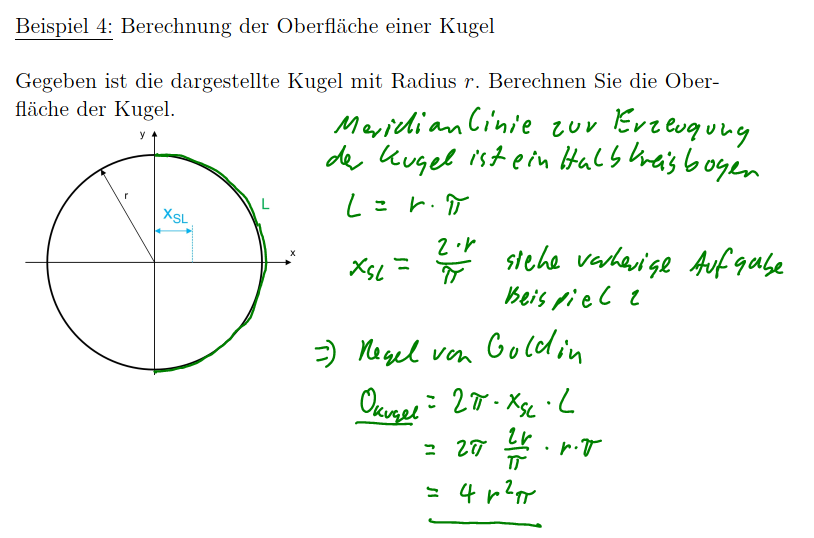 Beispiel 4: Berechnung der Oberfläche einer Kugel
Gegeben ist die dargestellte Kugel mit Radius r. Berechnen Sie die Ober-
fläche der Kugel.
y
r
x_SL
L
x
Meridianlinie zur Erzeugung
der Kugel ist ein Halbkreisbogen
L = r · π
x_SL = 2·r/π siehe vorherige Aufgabe
Beispiel 2
⇒ Regel von Goldin
O_Kugel = 2π · x_SL · L
= 2π 2r/π · r·π
= 4 r²π